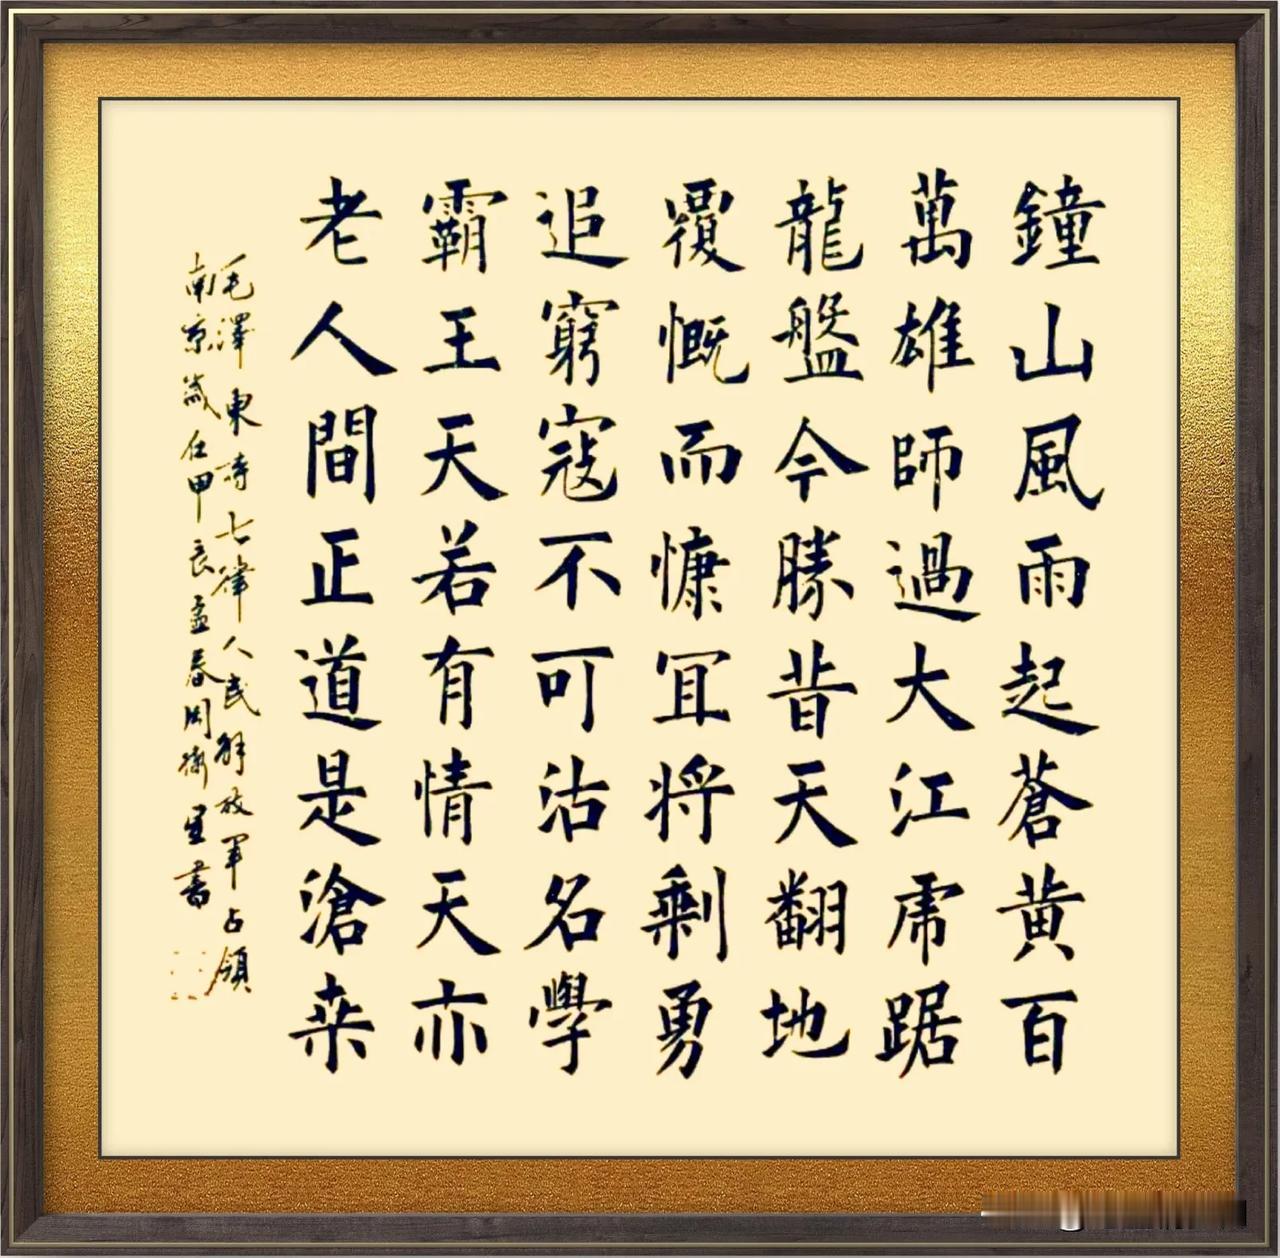 鐘山風雨起蒼黄百
萬雄師過大江虎踞
龍盤今勝昔天翻地
覆慨而慷冝将剩勇
追窮寇不可沽名學
霸王天若有情天亦
老人間正道是滄桒
毛澤東詩七律人民解放軍占領
南京歲在甲辰孟春周衛星書